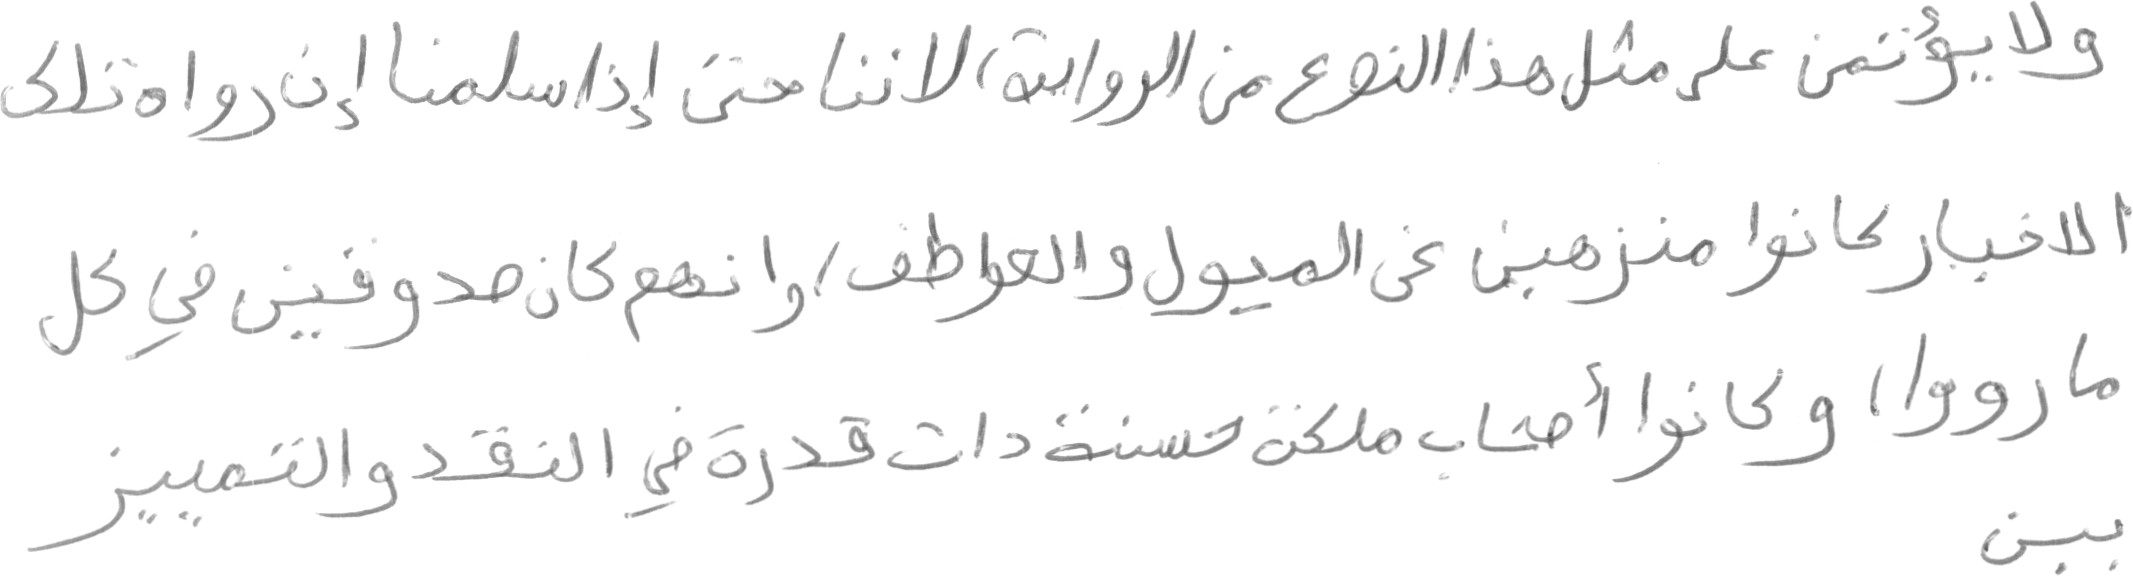 ولا يؤتمن على مثل هذا النوع من الرواية، لاننا حتى إذا سلمنا إن رواة تلك
الاخبار كانوا منزهين عن الميول والعواطف، وانهم كان صدوقين في كل
ما رووا، وكانوا أصحاب ملكة حسنة ذات قدرة في النقد والتمييز
بين